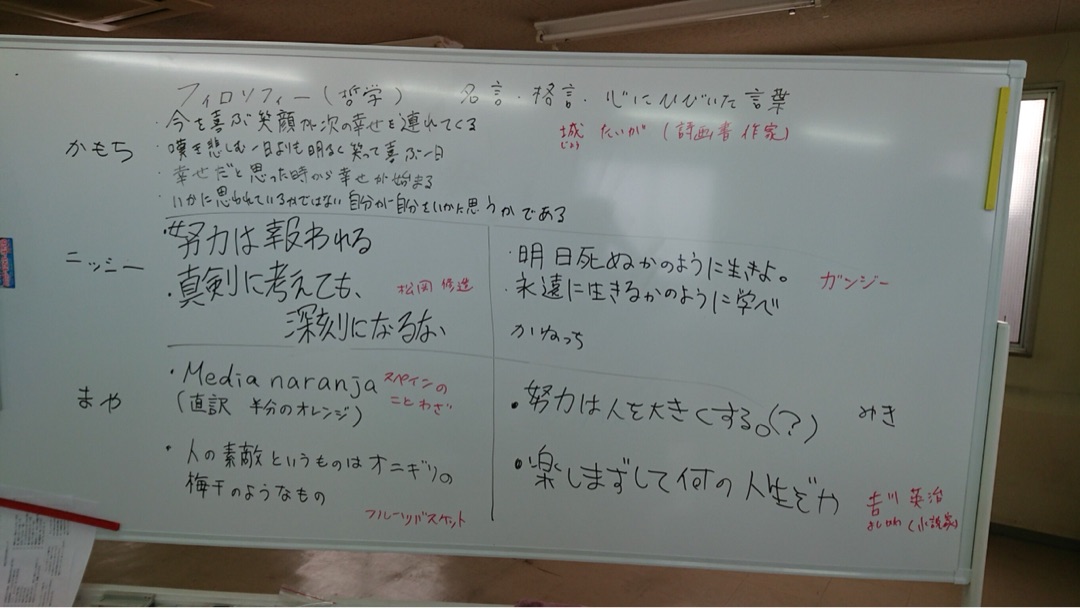 フィロソフィー(哲学)　名言・格言・心にひびいた言葉
かもち
・今を喜ぶ笑顔が次の幸せを連れてくる
城 たいが (計画書 作家)
じょう
・嘆き悲しむ一日よりも明るく笑って喜ぶ一日
・幸せだと思った時から幸せが始まる
・いかに思われているかではない 自分が自分をいかに思うかである
ニッシー
・努力は報われる
・真剣に考えても、
深刻になるな
松岡 修造
・明日死ぬかのように生きよ。
・永遠に生きるかのように学べ
ガンジー
かねっち
まや
・Media naranja
(直訳 半分のオレンジ)
スペインの
ことわざ
・人の素敵というものはオニギリの
梅干のようなもの
フルーツバスケット
・努力は人を大きくする。(?)
みき
・楽しまずして何の人生ぞや
吉川 英治
よしかわ (小説家)